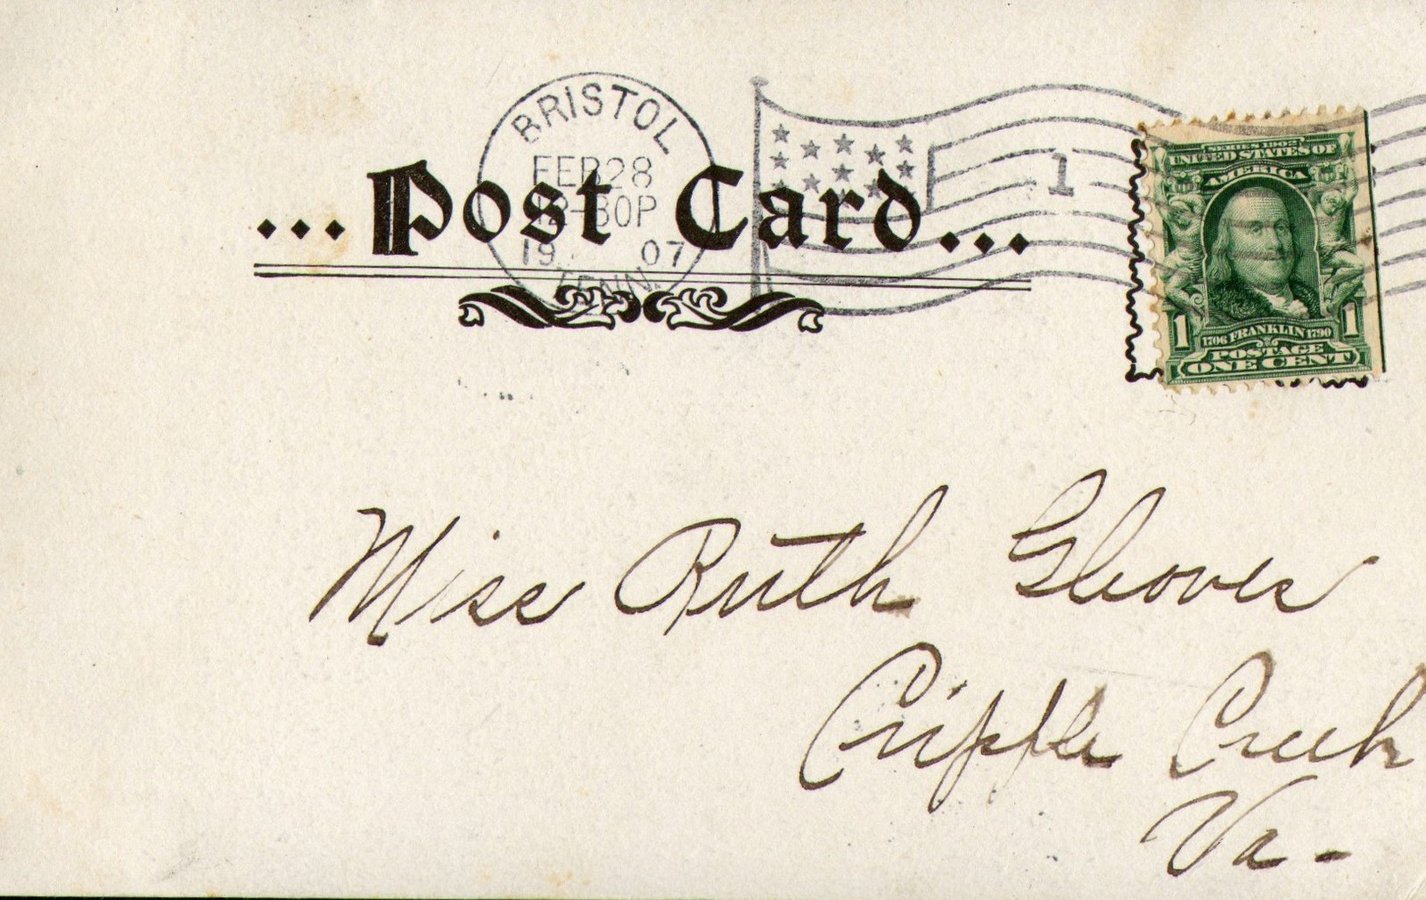 BRISTOL
FEB 28
12-30P
19 07
TENN.
1
... Post Card ...
SERIES 1902
UNITED STATES OF
AMERICA
1 1706 FRANKLIN 1790 1
POSTAGE
ONE CENT
Miss Ruth Gloves
Cripple Creek
Va-